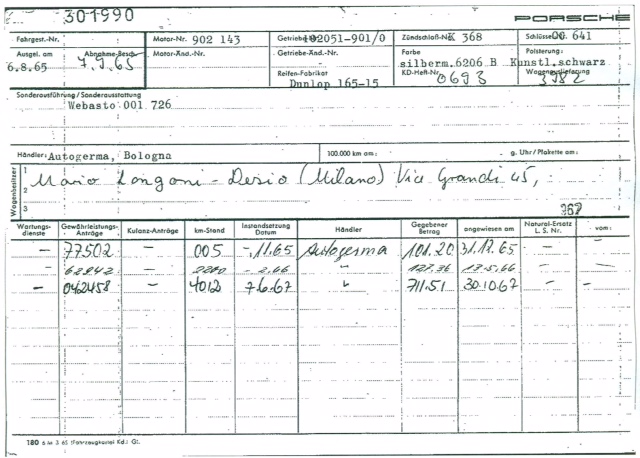 301990
PORSCHE
Fahrgest.-Nr. Motor-Nr. 902 143 Getriebe 102051-901/0 Zündschloß-Nr. K 368 Schlüssel 00 641
Ausgel. am 6.8.65 Abnahme-Besch. 7.9.65 Motor-Änd.-Nr. Getriebe-Änd.-Nr. Farbe silberm.6206 B Polsterung: Kunstl.schwarz
Reifen-Fabrikat Dunlop 165-15 KD-Heft-Nr. 0693 Wagenauslieferung
Sonderausführung / Sonderausstattung
Webasto 001 726
Händler: Autogerma, Bologna 100.000 km am: g. Uhr / Plakette am:
Wagenbesitzer
1 Mario Longoni - Desio (Milano) Via Grandi 45,
2
3
367
Wartungsdienste Gewährleistungs-Anträge Kulanz-Anträge km-Stand Instandsetzung Datum Händler Gegebener Betrag angewiesen am Natural-Ersatz L. S. Nr. vom:
— 77502 — 005 -.11.65 Autogerma 101.20 31.12.65 — —
— 62942 — 2200 -.2.66 " 127.36 17.5.66 — —
— 042458 — 4012 7.6.67 " 711.51 30.10.67 — —
180 6 M 3 65 (Fahrzeugkartei Kd.) Gt.